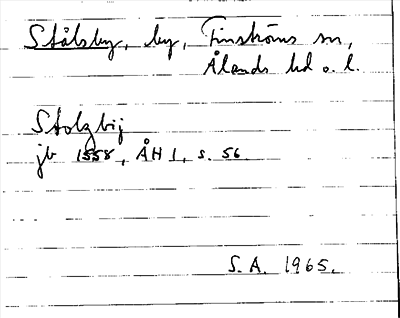 Stålsby, by, Finströms sn,
Ålands hd o. l.
Stolzbij
jb 1558, ÅH 1, s. 56
S.A. 1965.